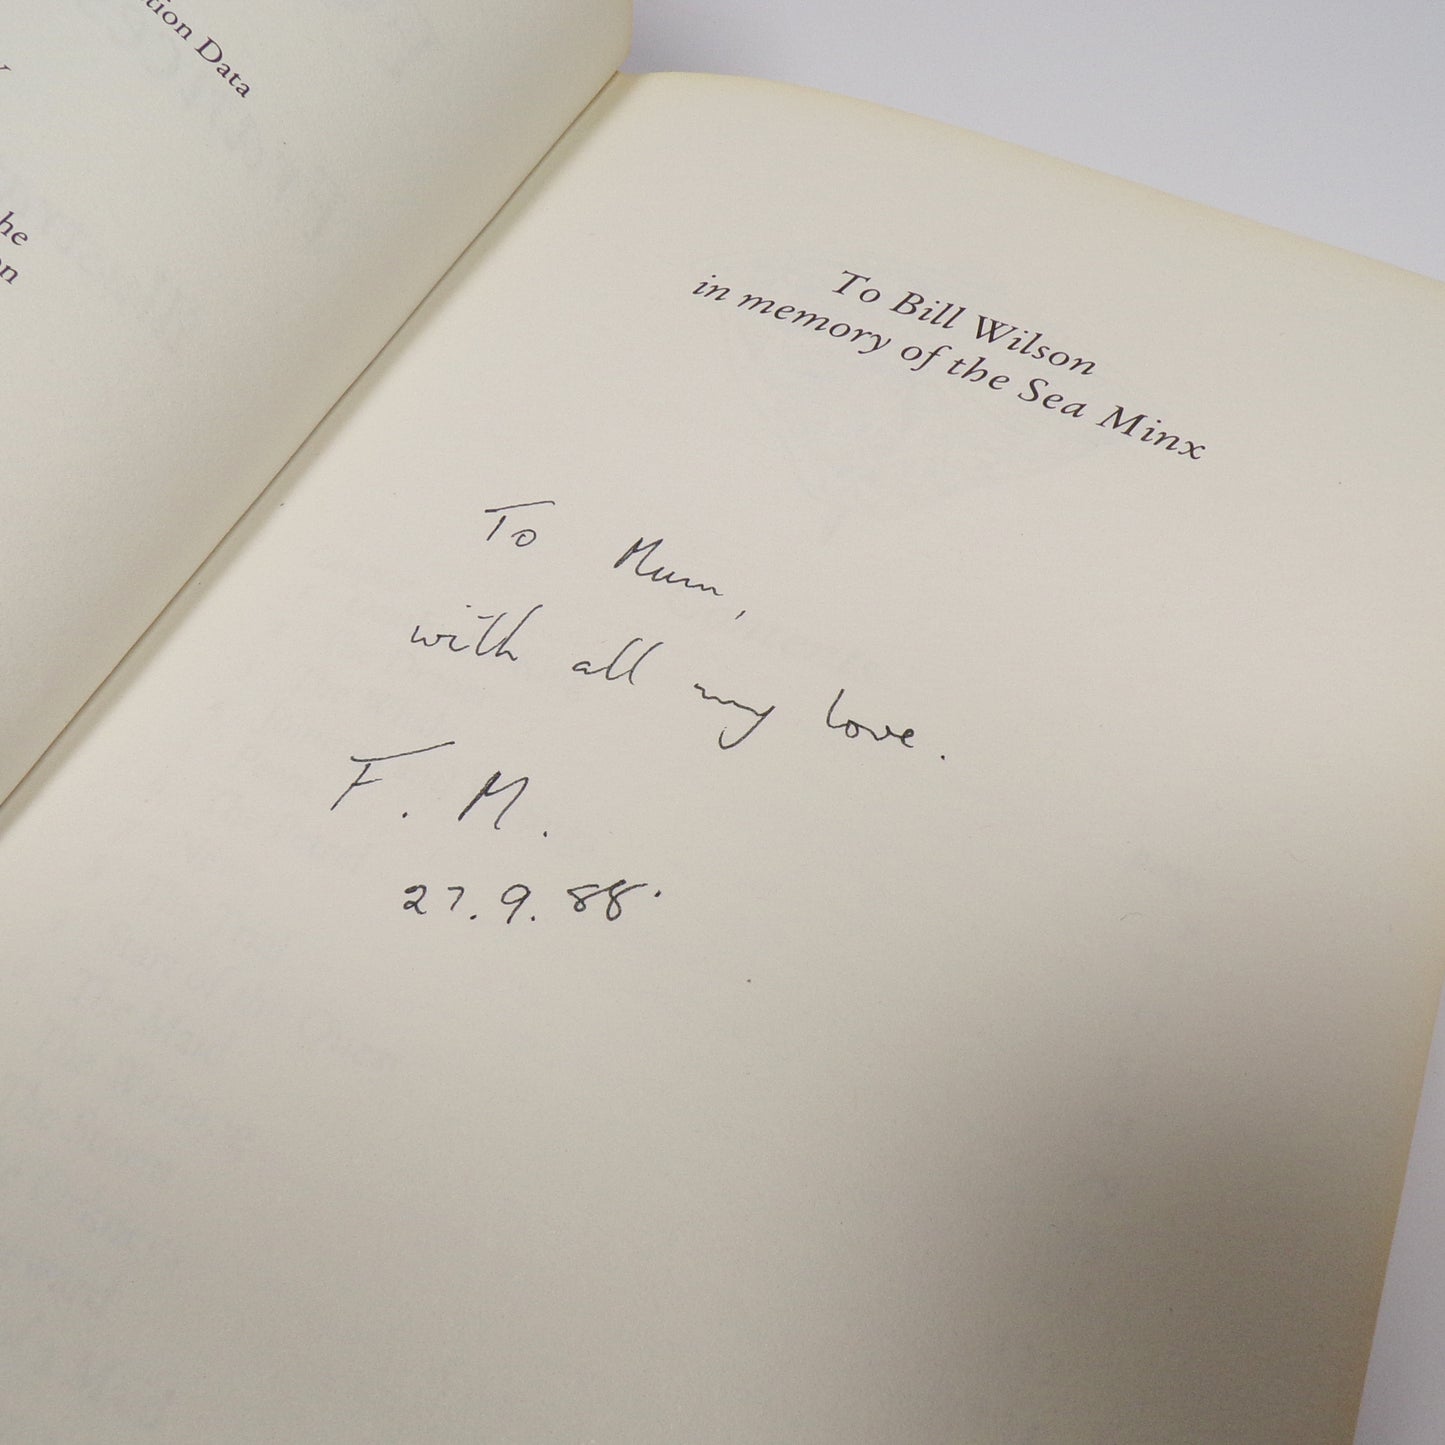 tion Data
he
on
To Bill Wilson
in memory of the Sea Minx
To Mum,
with all my love.
F. M.
27.9.88.